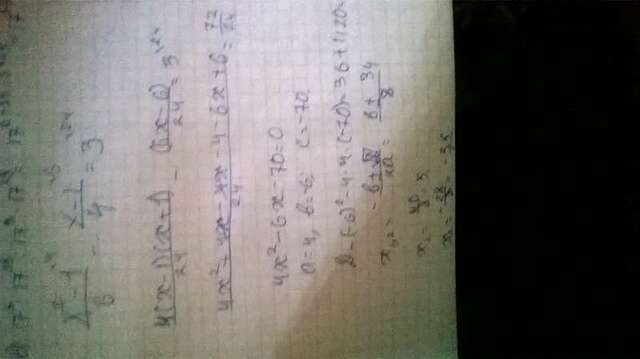 x² - 1 / 6 - x - 1 / 4 = 3
4(x-1)(x+1) / 24 - (6x-6) / 24 = 3
4x² + 4x - 4x - 4 - 6x + 6 / 24 = 72 / 24
4x² - 6x - 70 = 0
a = 4, b = -6, c = -70
D = (-6)² - 4·4·(-70) = 36 + 1120 =
x₁,₂ = -b ± √D / 2a = 6 ± 34 / 8
x₁ = 40 / 8 = 5
x₂ = -28 / 8 = -3,5